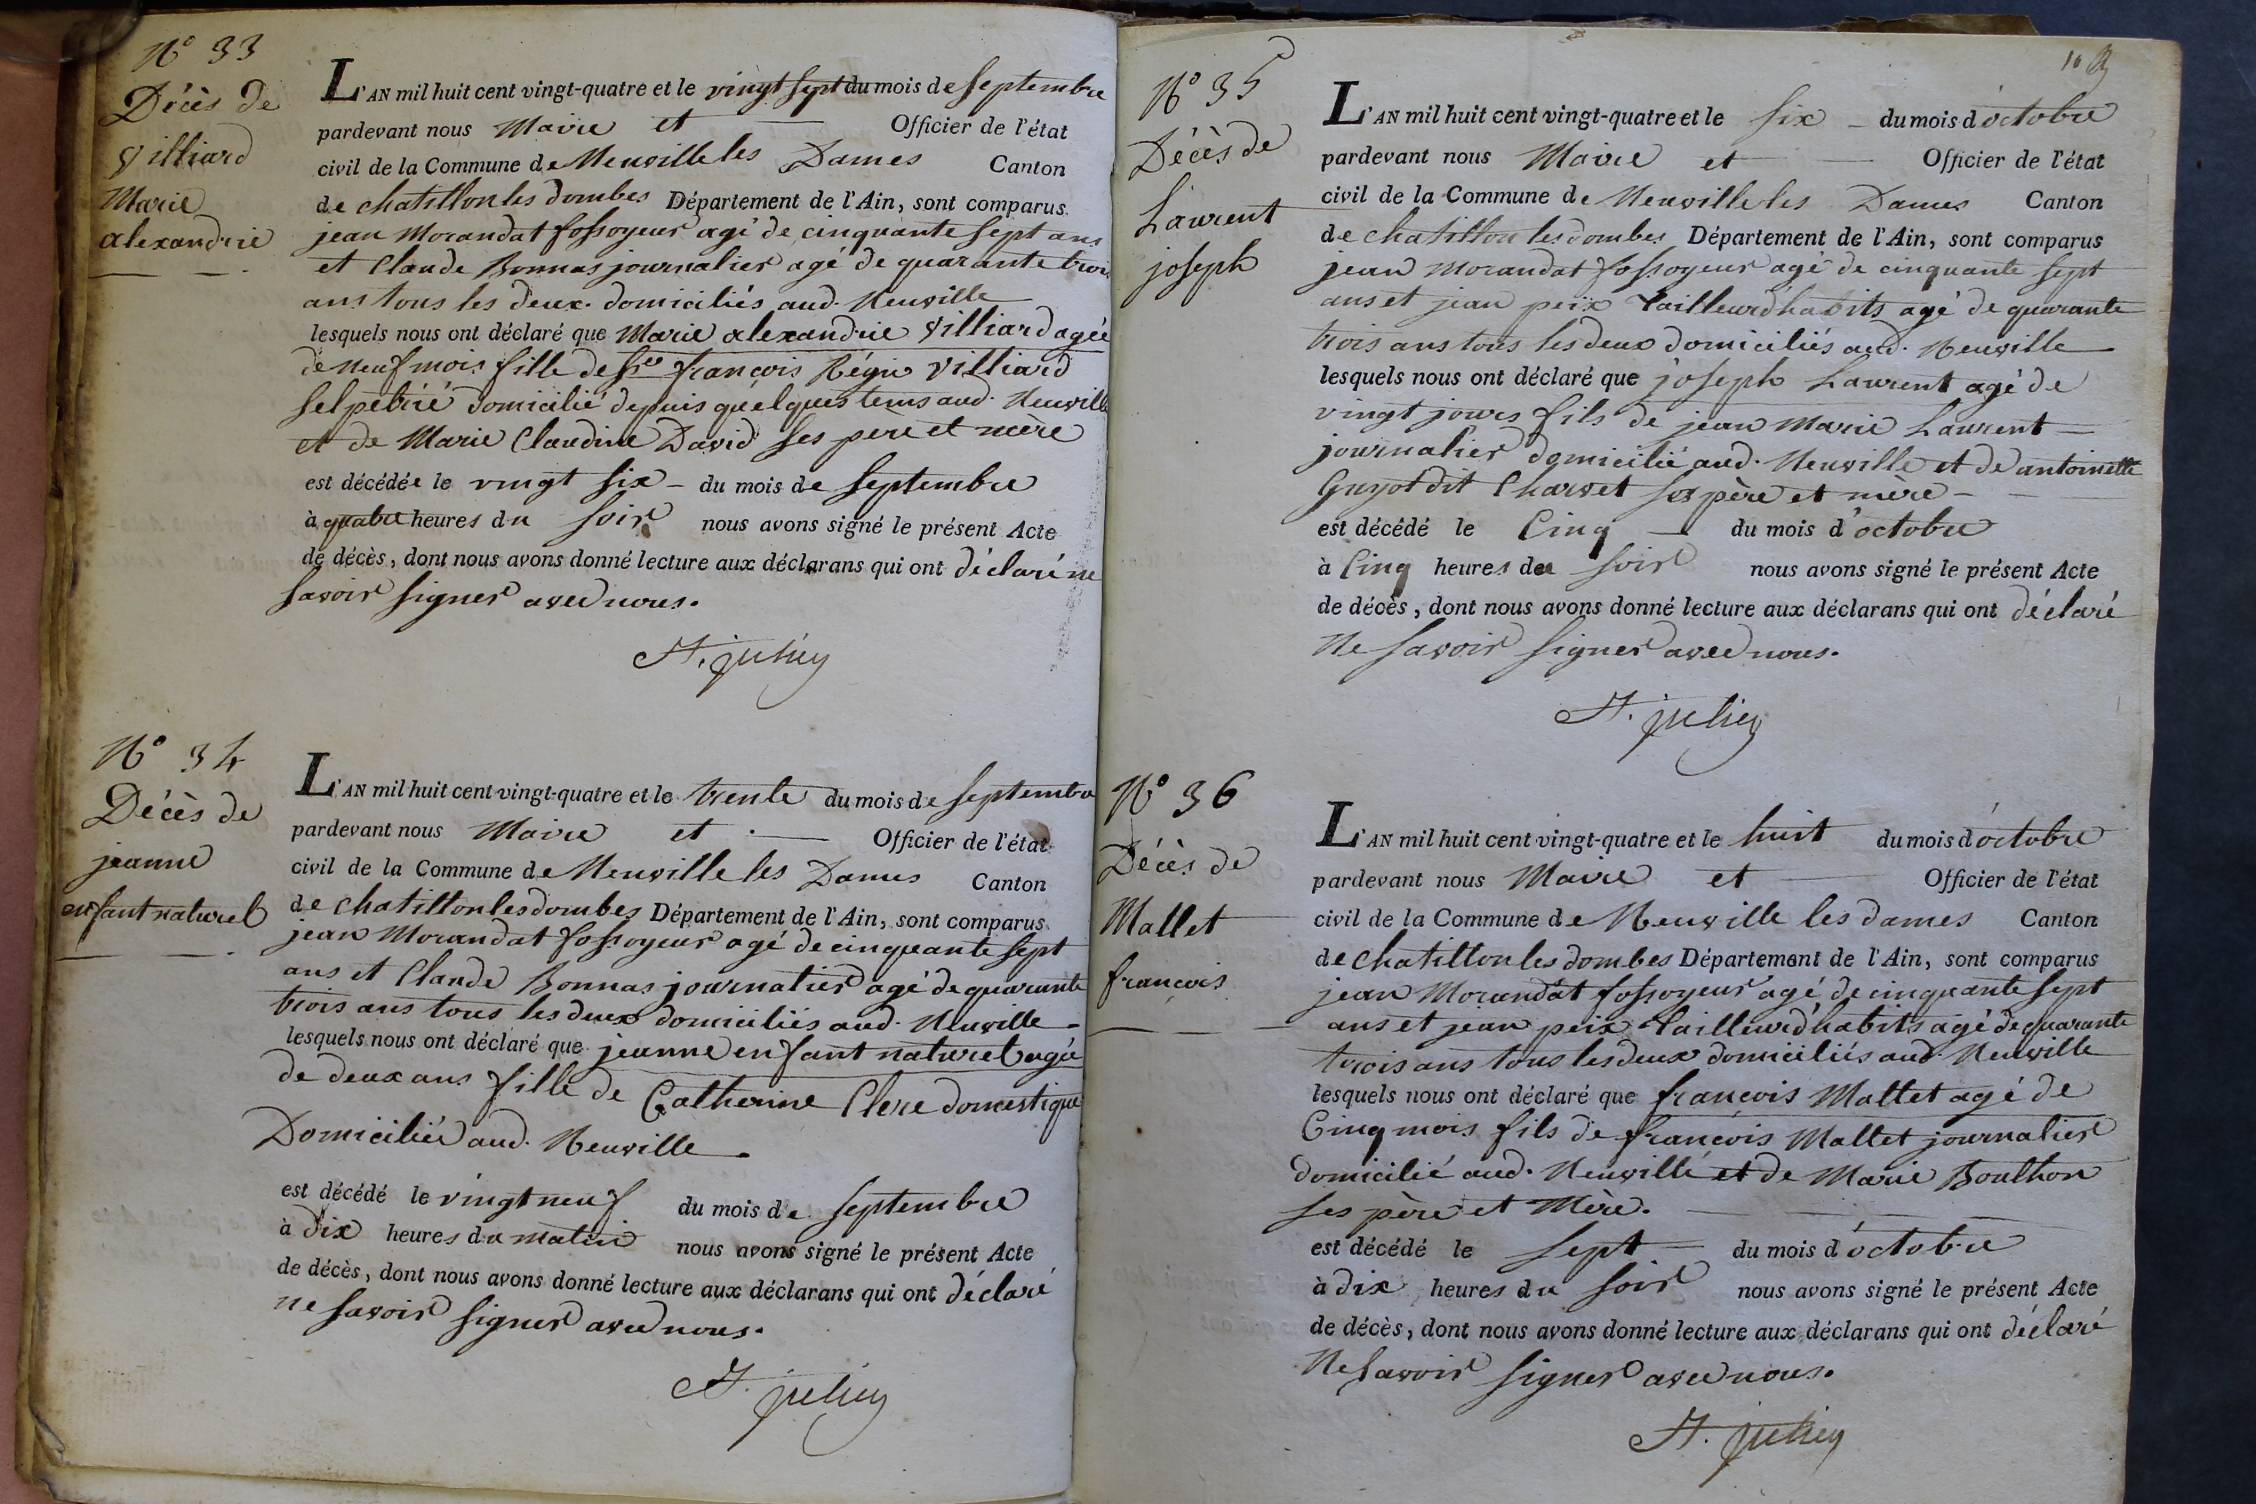 N° 33
Décès de
Villiard
Marie
alexandrie
L'AN mil huit cent vingt-quatre et le vingt sept du mois de septembre
pardevant nous Maire et Officier de l'état
civil de la Commune de Neuville les Dames Canton
de chatillon les dombes Département de l'Ain, sont comparus
jean Morandat fossoyeur agé de cinquante sept ans
et Claude Bonnas journalier agé de quarante trois
ans tous les deux domiciliés aud. Neuville
lesquels nous ont déclaré que Marie alexandrie Villiard agée
de neuf mois fille de Sr françois Régis Villiard
selpétrié domicilié depuis quelques tems aud. Neuville
et de Marie Claudine David ses père et mère
est décédée le vingt six du mois de septembre
à quatre heures du soir nous avons signé le présent Acte
de décès, dont nous avons donné lecture aux déclarans qui ont déclaré ne
savoir signer avec nous.
N° 34
Décès de
jeanne
enfant naturel
L'AN mil huit cent vingt-quatre et le trente du mois de septembre
pardevant nous Maire et Officier de l'état
civil de la Commune de Neuville les Dames Canton
de chatillon les dombes Département de l'Ain, sont comparus
jean Morandat fossoyeur agé de cinquante sept
ans et Claude Bonnas journalier agé de quarante
trois ans tous les deux domiciliés aud. Neuville
lesquels nous ont déclaré que jeanne enfant naturel agée
de deux ans fille de Catherine Clere domestique
Domiciliée aud. Neuville
est décédé le vingt neuf du mois de septembre
à dix heures du matin nous avons signé le présent Acte
de décès, dont nous avons donné lecture aux déclarans qui ont déclaré
ne savoir signer avec nous.
N° 35
Décès de
Laurent
joseph
L'AN mil huit cent vingt-quatre et le six du mois d'octobre
pardevant nous Maire et Officier de l'état
civil de la Commune de Neuville les Dames Canton
de chatillon les dombes Département de l'Ain, sont comparus
jean Morandat fossoyeur agé de cinquante sept
ans et jean peix tailleur d'habits agé de quarante
trois ans tous les deux domiciliés aud. Neuville
lesquels nous ont déclaré que joseph Laurent agé de
vingt jours fils de jean Marie Laurent
journalier domicilié aud. Neuville et de antoinette
Guyot dit Charvet ses père et mère
est décédé le Cinq du mois d'octobre
à Cinq heures du soir nous avons signé le présent Acte
de décès, dont nous avons donné lecture aux déclarans qui ont déclaré
Ne savoir signer avec nous.
N° 36
Décès de
Mallet
françois
L'AN mil huit cent vingt-quatre et le huit du mois d'octobre
pardevant nous Maire et Officier de l'état
civil de la Commune de Neuville les dames Canton
de chatillon les dombes Département de l'Ain, sont comparus
jean Morandat fossoyeur agé de cinquante sept
ans et jean peix tailleur d'habits agé de quarante
trois ans tous les deux domiciliés aud. Neuville
lesquels nous ont déclaré que françois Mallet agé de
Cinq mois fils de françois Mallet journalier
domicilié aud. Neuville et de Marie Bouthon
ses père et Mère.
est décédé le sept du mois d'octobre
à dix heures du soir nous avons signé le présent Acte
de décès, dont nous avons donné lecture aux déclarans qui ont déclaré
Ne savoir signer avec nous.